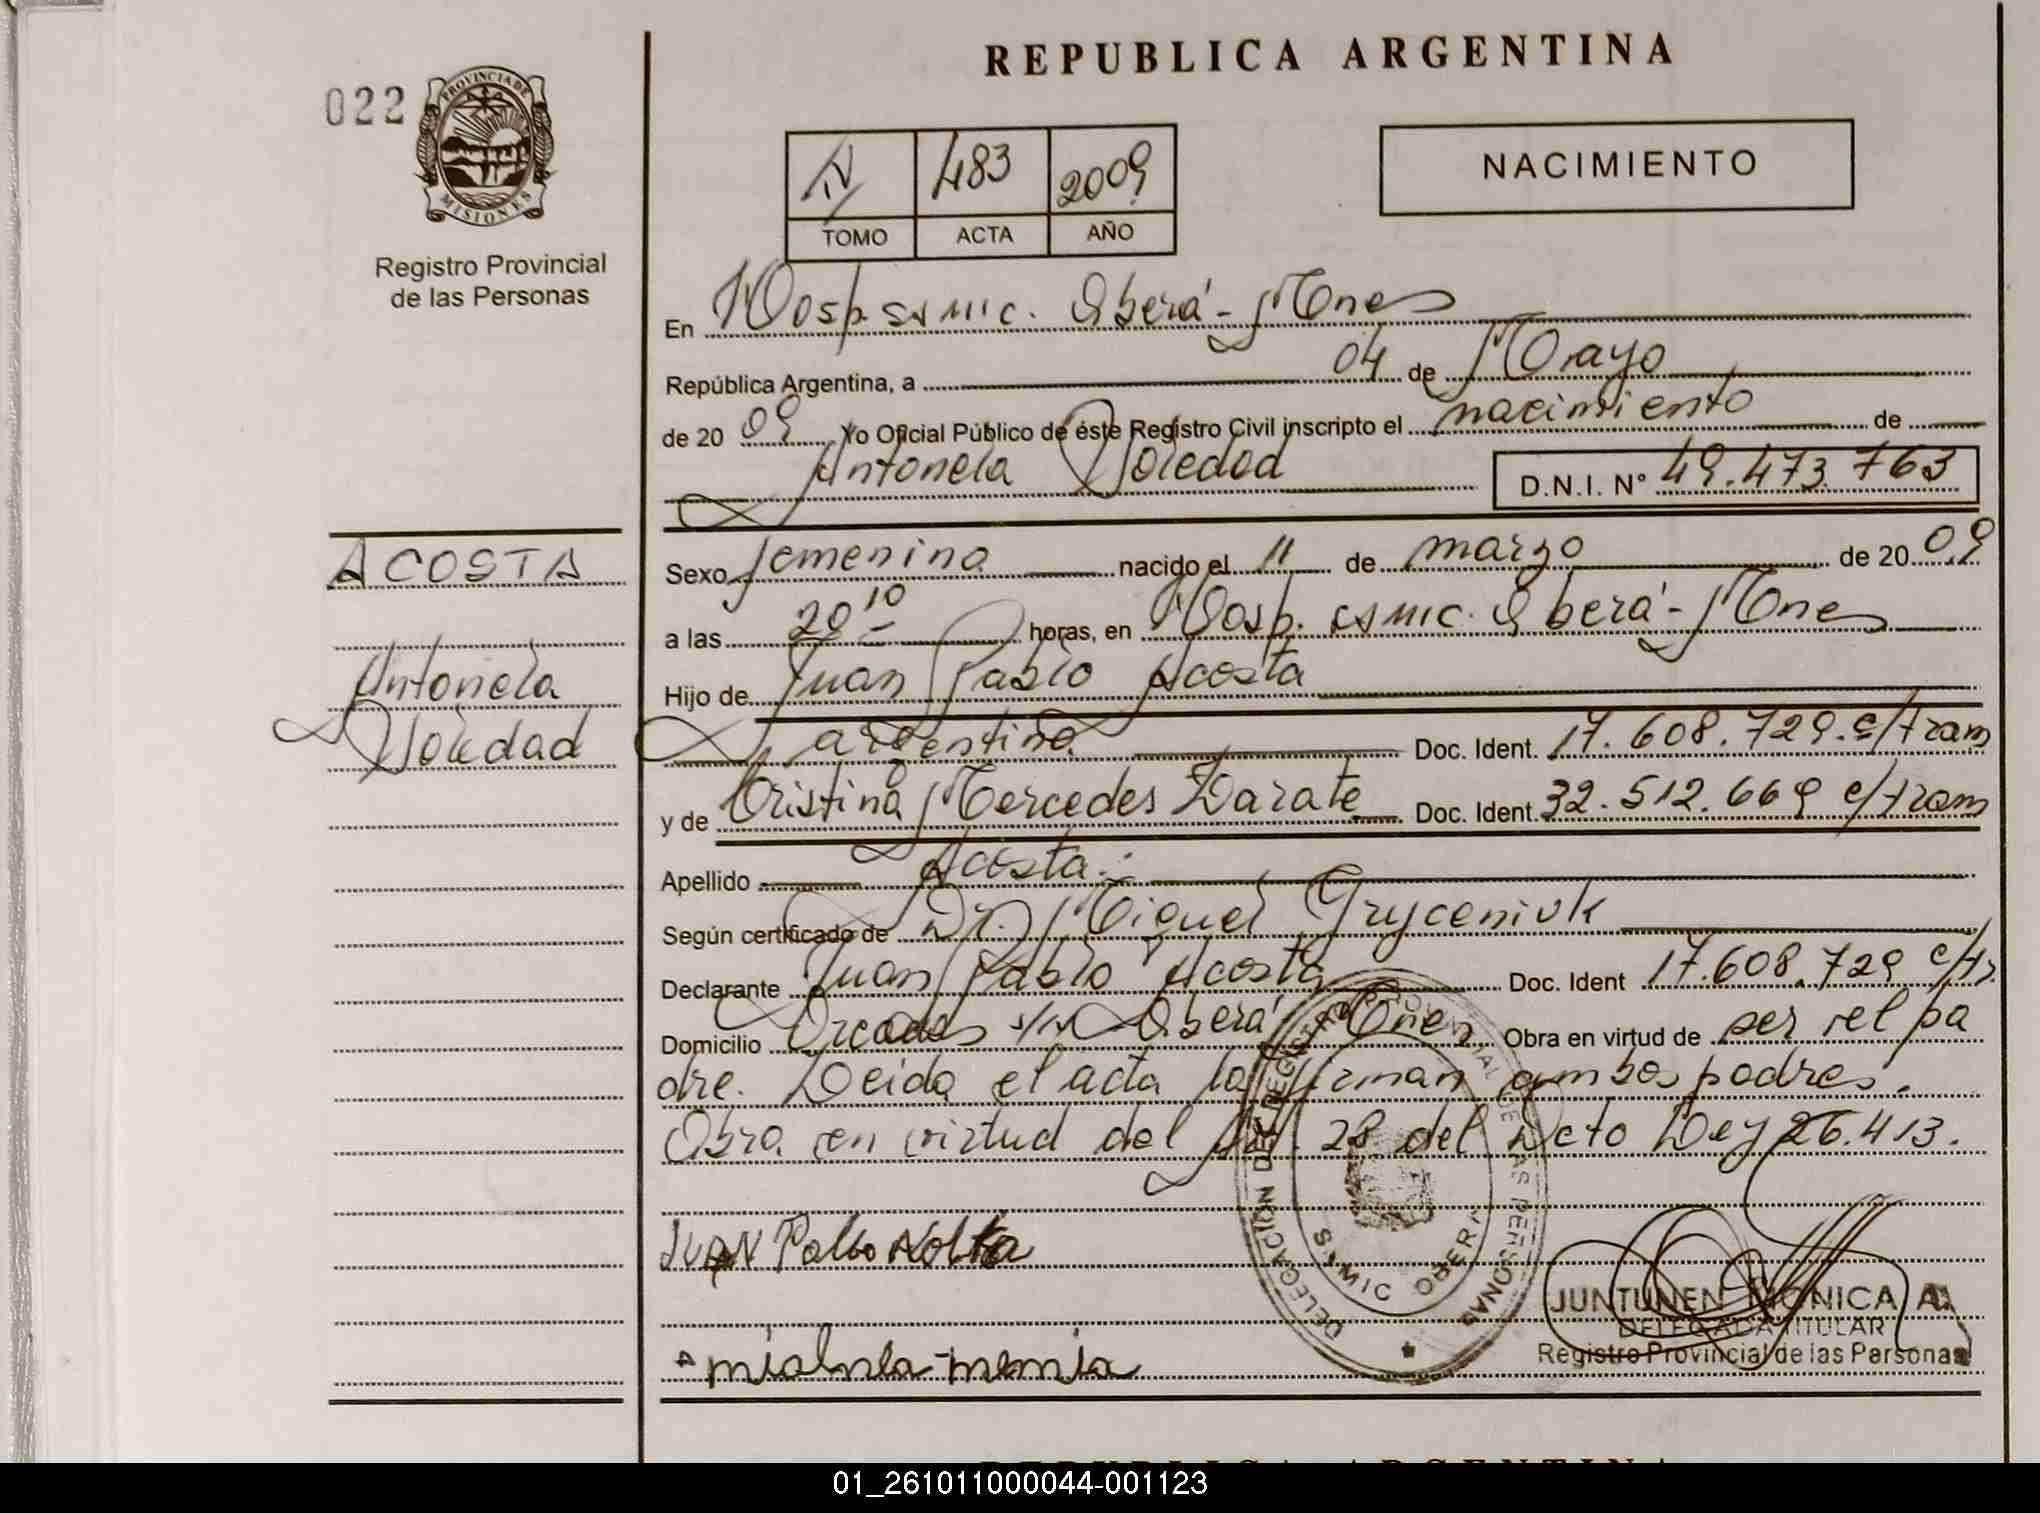 REPUBLICA ARGENTINA
022
PROVINCIA DE
MISIONES
Registro Provincial
de las Personas
IV 483 2009
TOMO ACTA AÑO
NACIMIENTO
En Hosp. samic. Oberá - Mnes
República Argentina, a 04 de Mayo
de 20 09 Yo Oficial Público de éste Registro Civil inscripto el nacimiento de
Antonela Soledad D.N.I. N° 49.473.763
ACOSTA
Antonela
Soledad
Sexo femenino nacido el 11 de marzo de 20 09
a las 20 10 horas, en Hosp. samic. Oberá - Mnes
Hijo de Juan Pablo Acosta
argentino Doc. Ident. 17.608.729 c/tram
y de Cristina Mercedes Zarate Doc. Ident. 32.512.669 c/tram
Apellido Acosta.
Según certificado de Dr. Miguel Gryceniuk
Declarante Juan Pablo Acosta Doc. Ident 17.608.729 c/tr.
Domicilio s/n Oberá Mnes Obra en virtud de ser el pa
dre. Leida el acta la firman ambos padres.
Obra en virtud del Art. 28 del Dcto Ley 26.413.
JUAN Pablo
DELEGACION DEL REGISTRO PROVINCIAL DE LAS PERSONAS
SAMIC OBERA
JUNTUNEN MONICA A.
DELEGADA TITULAR
Registro Provincial de las Personas
REPUBLICA ARGENTINA
01_261011000044-001123